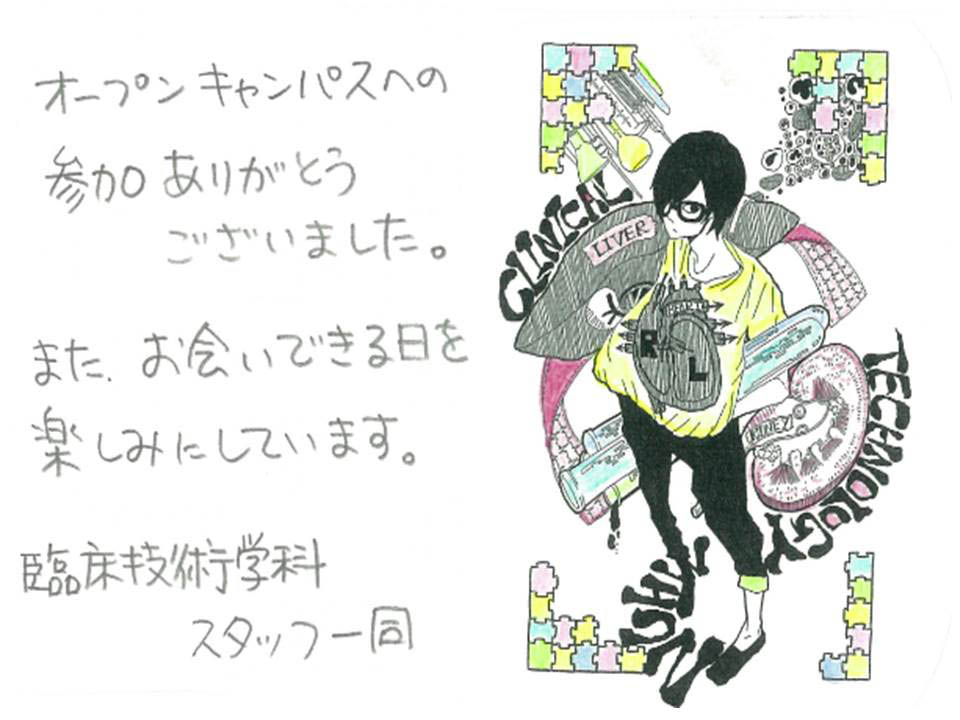 オープンキャンパスへの
参加ありがとう
ございました。
また、お会いできる日を
楽しみにしています。
臨床技術学科
スタッフ一同
CLINICAL
LIVER
R
L
TECHNOLOGY